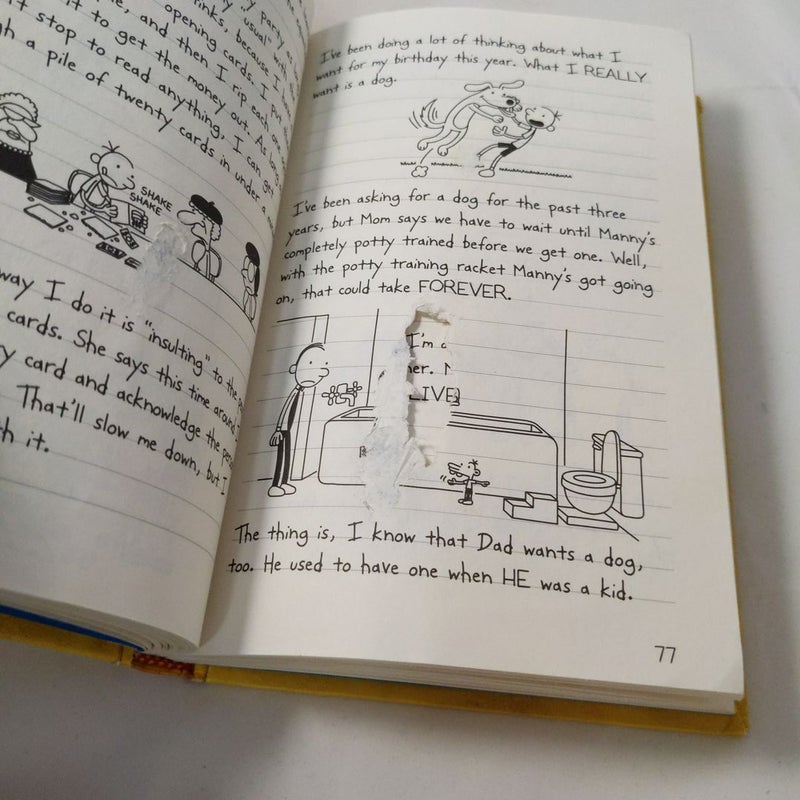 y party
y "usual" with the
rinks, because I
opening cards. I put
me, and then I rip each one
it to get the money out. As long
t stop to read anything, I can get
gh a pile of twenty cards in under a
SHAKE
SHAKE
way I do it is "insulting" to the
cards. She says this time around
ry card and acknowledge the
That'll slow me down, but I
h it.
I've been doing a lot of thinking about what I
want for my birthday this year. What I REALLY
want is a dog.
I've been asking for a dog for the past three
years, but Mom says we have to wait until Manny's
completely potty trained before we get one. Well,
with the potty training racket Manny's got going
on, that could take FOREVER.
I'm
er.
LIVE
The thing is, I know that Dad wants a dog,
too. He used to have one when HE was a kid.
77